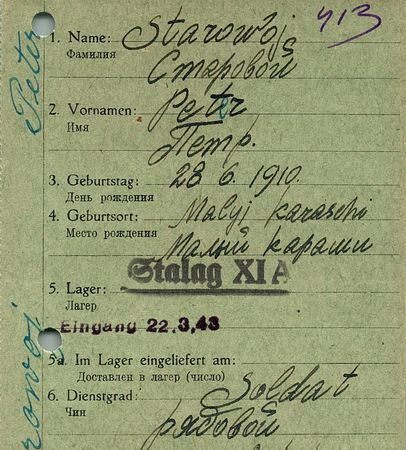 413
1. Name: Starowoj
Фамилия Старовой
2. Vornamen: Peter
Имя Петр.
3. Geburtstag: 28. 6. 1910.
День рождения
4. Geburtsort: Malyj Karaschi
Место рождения Малый караши
Stalag XI A
5. Lager:
Лагерь
Eingang 22.3.43
5a. Im Lager eingeliefert am:
Доставлен в лагер (число)
6. Dienstgrad: Soldat
Чин рядовой
Peter
rowoj